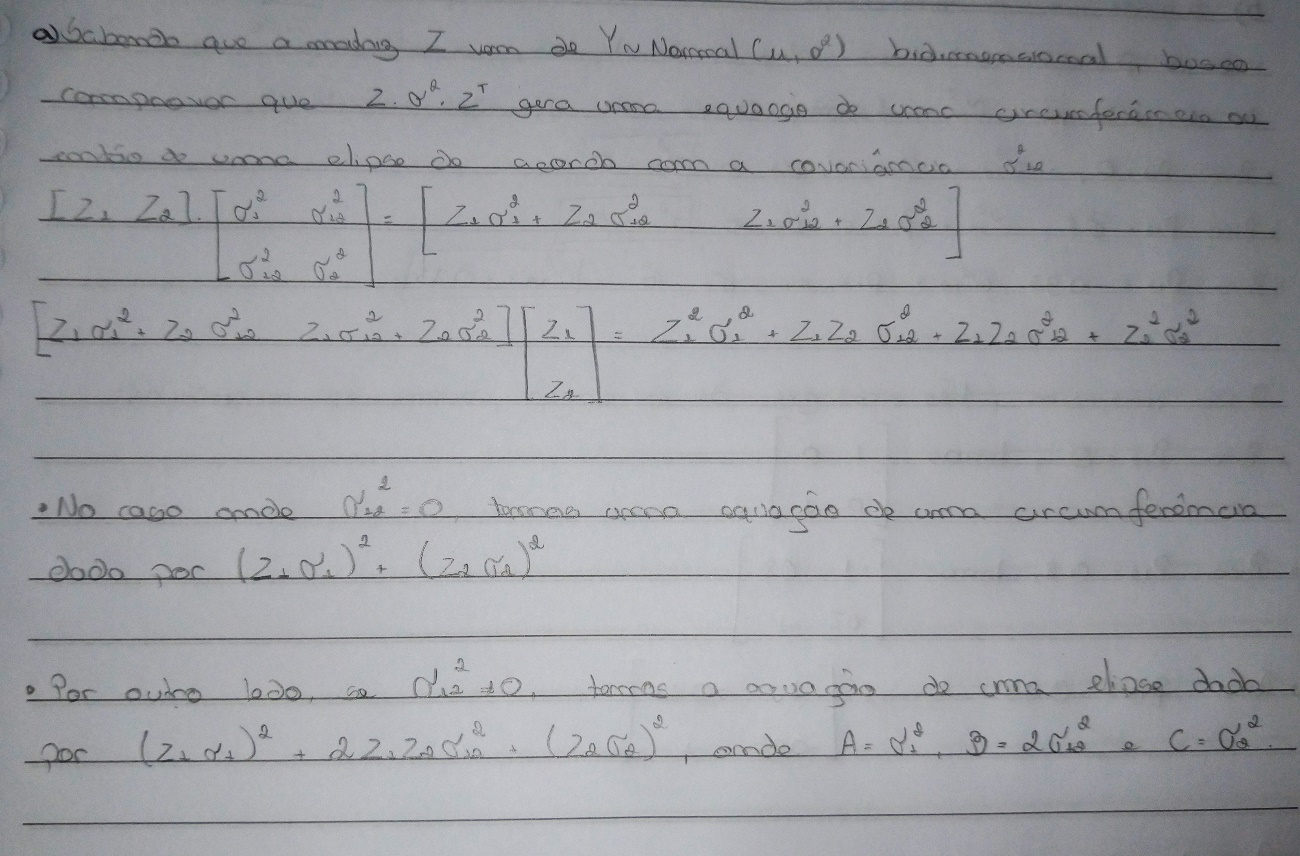 a) Sabendo que a matriz Z vem de Y~Normal(u, σ²) bidimensional, busco
comprovar que Z.σ².Zᵀ gera uma equação de uma circunferência ou
então de uma elipse de acordo com a covariância σ²₁₂.
[Z₁ Z₂].[σ₁² σ₁₂² ; σ₁₂² σ₂²] = [Z₁σ₁² + Z₂σ₁₂² Z₁σ₁₂² + Z₂σ₂²]
[Z₁σ₁² + Z₂σ₁₂² Z₁σ₁₂² + Z₂σ₂²][Z₁ ; Z₂] = Z₁²σ₁² + Z₁Z₂σ₁₂² + Z₁Z₂σ₁₂² + Z₂²σ₂²
• No caso onde σ₁₂² = 0, temos uma equação de uma circunferência
dada por (Z₁σ₁)² + (Z₂σ₂)²
• Por outro lado, se σ₁₂² ≠ 0, temos a equação de uma elipse dada
por (Z₁σ₁)² + 2Z₁Z₂σ₁₂² + (Z₂σ₂)², onde A = σ₁², B = 2σ₁₂² e C = σ₂².